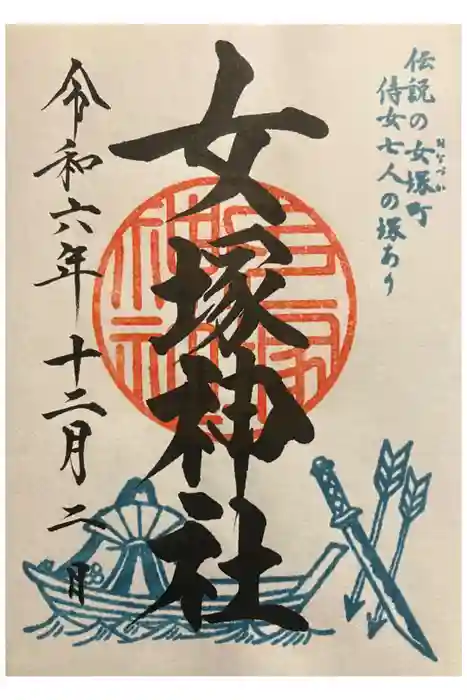 伝説の女塚町
おなづか
侍女七人の塚あり
女塚神社
令和六年十二月二日